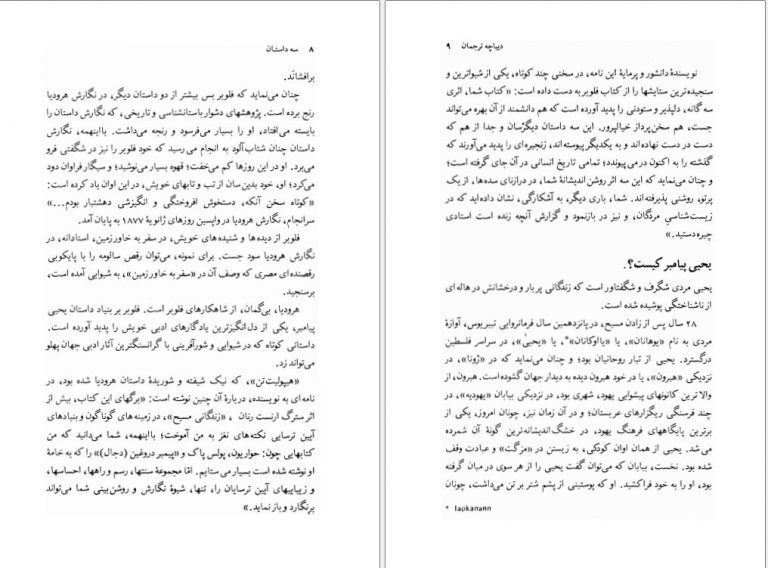 ۸ سه داستان
برافشاند.
چنان می‌نماید که فلوبر بس بیشتر از دو داستان دیگر، در نگارش هرودیا
رنج برده است. پژوهشهای دشوار باستانشناسی و تاریخی، که نگارش داستان را
بایسته می‌افتاد، او را بسیار می‌فرسود و رنجه می‌داشت. بااینهمه، نگارش
داستان چنان شتاب‌آلود به انجام می‌رسید که خود فلوبر را نیز در شگفتی فرو
می‌برد. او در این روزها کم می‌خفت؛ قهوه بسیار می‌نوشید؛ و سیگار فراوان دود
می‌کرد؛ او، خود بدین‌سان از تب و تابهای خویش، در این اوان یاد کرده است:
«کوتاه سخن آنکه، دستخوش افروختگی و انگیزشی دهشتبار بودم...»
سرانجام، نگارش هرودیا در واپسین روزهای ژانویهٔ ۱۸۷۷ به پایان آمد.
فلوبر از دیده‌ها و شنیده‌های خویش، در سفر به خاورزمین، استادانه، در
نگارش هرودیا سود جست. برای نمونه، می‌توان رقص سالومه را با پایکوبی
رقصنده‌ای مصری که وصف آن در «سفر به خاورزمین»، به شیوایی آمده است،
برسنجید.
هرودیا، بی‌گمان، از شاهکارهای فلوبر است. فلوبر بر بنیاد داستان یحیی
پیامبر، یکی از دل‌انگیزترین یادگارهای ادبی خویش را پدید آورده است.
داستانی کوتاه که در شیوایی و شورآفرینی با گرانسنگترین آثار ادبی جهان پهلو
می‌تواند زد.
«هیپولیت‌تن»، که نیک شیفته و شوریدهٔ داستان هرودیا شده بود، در
نامه‌ای به نویسنده، دربارهٔ آن چنین نوشته است: «برگهای این کتاب، بیش از
اثر سترگ ارنست رنان ، «زندگانی مسیح»، در زمینه‌های گوناگون و بنیادهای
آیین ترسایی نکته‌های نغز به من آموخت؛ بااینهمه، شما می‌دانید که من
کتابهایی چون: حواریون، پولس پاک و «پیمبر دروغین (دجال)» را که به خامهٔ
او نوشته شده است بسیار می‌ستایم. امّا مجموعهٔ سنتها، رسم و راهها، احساسها،
و زیباییهای آیین ترسایان را، تنها، شیوهٔ نگارش و روشن‌بینی شما می‌تواند
برنگارد و باز نماید.»
دیباچه ترجمان ۹
نویسندهٔ دانشور و پرمایهٔ این نامه، در سخنی چند کوتاه، یکی از شیواترین و
سنجیده‌ترین ستایشها را از کتاب فلوبر به دست داده است: «کتاب شما، اثری
سه گانه، دلپذیر و ستودنی را پدید آورده است که هم دانشمند از آن بهره می‌تواند
جست، هم سخن‌پرداز خیالپرور. این سه داستان دیگرسان و جدا از هم که
دست در دست نهاده‌اند و به یکدیگر پیوسته‌اند، زنجیره‌ای را پدید می‌آورند که
گذشته را به اکنون در می‌پیوندد؛ تمامی تاریخ انسانی در آن جای گرفته است؛
و چنان می‌نماید که این سه اثر روشن اندیشانهٔ شما، در درازنای سده‌ها، از یک
پرتو، روشنی پذیرفته‌اند. شما، باری دیگر، به آشکارگی، نشان داده‌اید که در
زیست‌شناسیِ مردگان، و نیز در بازنمود و گزارش آنچه زنده است استادی
چیره‌دستید.»
یحیی پیامبر کیست؟.
یحیی مردی شگرف و شگفتاور است که زندگانی پربار و درخشانش در هاله‌ای
از ناشناختگی پوشیده شده است.
۲۸ سال پس از زادن مسیح، در پانزدهمین سال فرمانروایی تیبریوس، آوازهٔ
مردی به نام «یوهانان»، یا «یااوکانان»*، یا «یحیی»، در سراسر فلسطین
درگسترد. یحیی از تبار روحانیان بود؛ و چنان می‌نماید که در «ژوتا»، در
نزدیکی «هبرون»، یا در خود هبرون دیده به دیدار جهان گشوده است. هبرون، از
والاترین کانونهای پیشوایی یهود، شهری بود، در نزدیکی بیابان «یهودیه»، در
چند فرسنگی ریگزارهای عربستان؛ و در آن زمان نیز، چونان امروز، یکی از
برترین پایگاههای فرهنگ یهود، در خشگ‌اندیشانه‌ترین گونهٔ آن شمرده
می شد. یحیی از همان اوان کودکی، به زیستن در «مزگت» و عبادت وقف
شده بود. نخست، بیابان که می‌توان گفت یحیی را از هر سوی در میان گرفته
بود، او را به خود فراکشید. او که پوستینی از پشم شتر بر تن می‌داشت، چونان
* Iaokanann